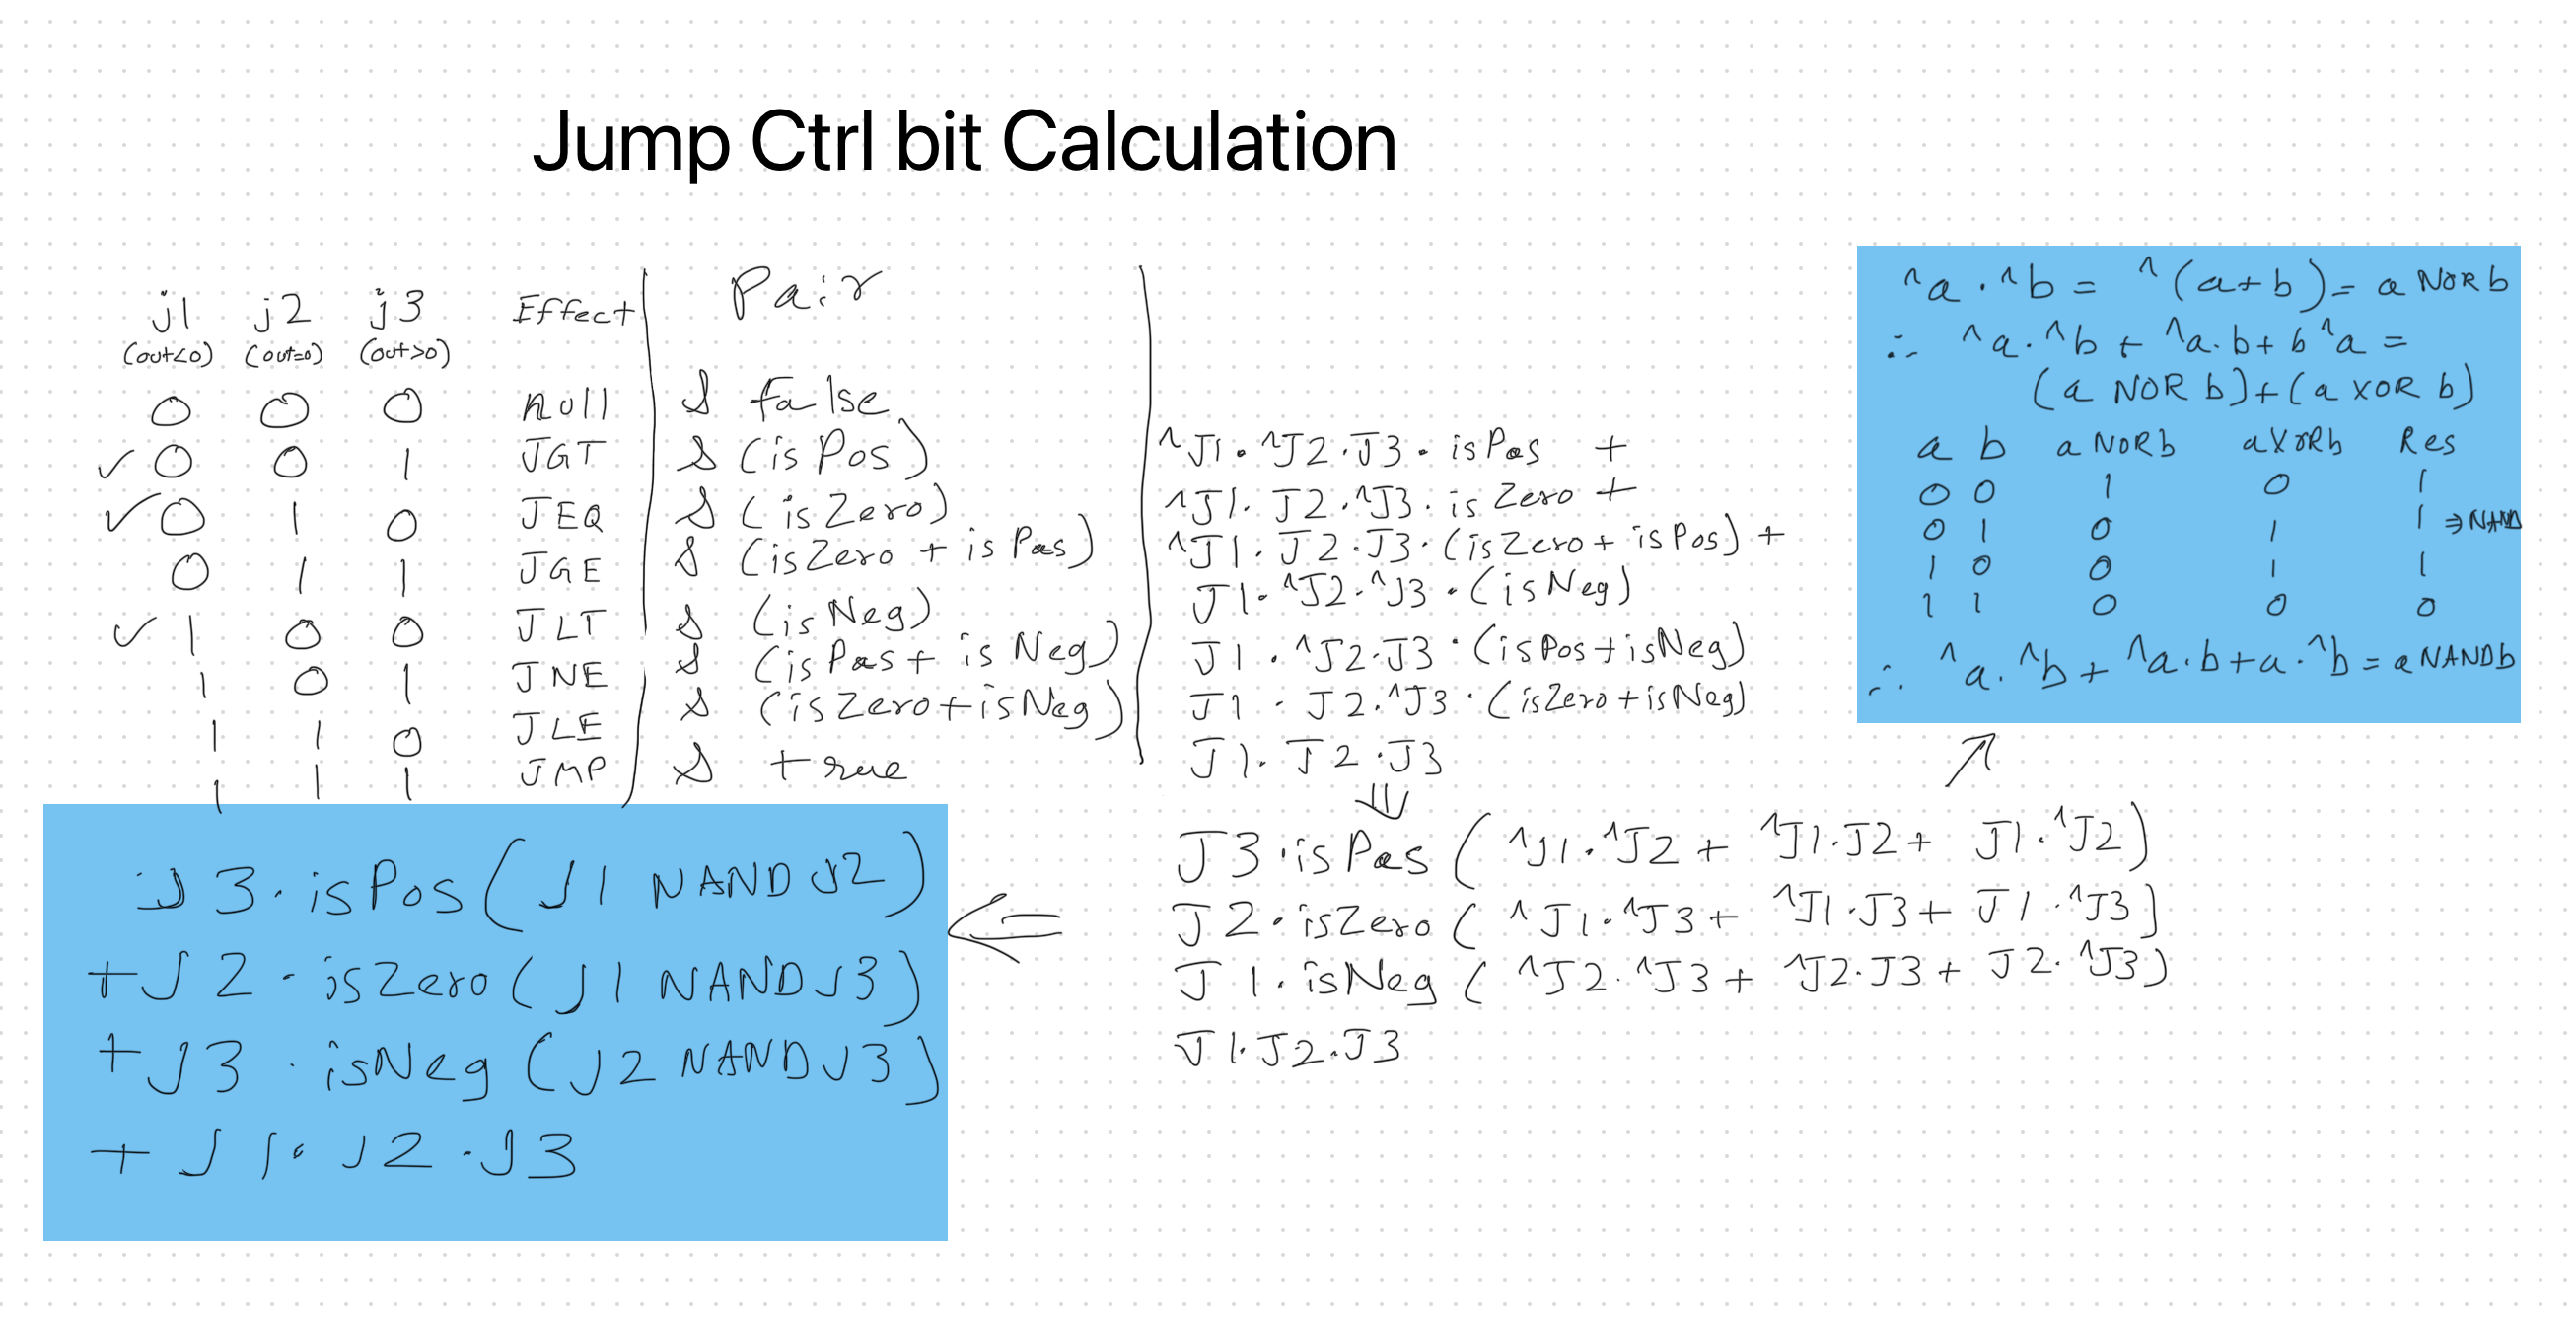 Jump Ctrl bit Calculation
j1 j2 j3 Effect Pair
(out<0) (out=0) (out>0)
0 0 0 null & false
✓ 0 0 1 JGT & (isPos)
✓ 0 1 0 JEQ & (isZero)
0 1 1 JGE & (isZero + isPos)
✓ 1 0 0 JLT & (isNeg)
1 0 1 JNE & (isPos + isNeg)
1 1 0 JLE & (isZero + isNeg)
1 1 1 JMP & true
^J1 . ^J2 . J3 . isPos +
^J1 . J2 . ^J3 . isZero +
^J1 . J2 . J3 . (isZero + isPos) +
J1 . ^J2 . ^J3 . (isNeg)
J1 . ^J2 . J3 . (isPos + isNeg)
J1 . J2 . ^J3 . (isZero + isNeg)
J1 . J2 . J3
⇓
J3 . isPos ( ^J1 . ^J2 + ^J1 . J2 + J1 . ^J2 )
J2 . isZero ( ^J1 . ^J3 + ^J1 . J3 + J1 . ^J3 )
J1 . isNeg ( ^J2 . ^J3 + ^J2 . J3 + J2 . ^J3 )
J1 . J2 . J3
^a . ^b = ^(a+b) = a NOR b
∴ ^a . ^b + ^a . b + b ^a =
(a NOR b) + (a XOR b)
a b a NOR b a XOR b Res
0 0 1 0 1
0 1 0 1 1 ⇒ NAND
1 0 0 1 1
1 1 0 0 0
∴ ^a . ^b + ^a . b + a . ^b = a NAND b
J3 . isPos ( J1 NAND J2 )
+ J2 . isZero ( J1 NAND J3 )
+ J3 . isNeg ( J2 NAND J3 )
+ J1 . J2 . J3